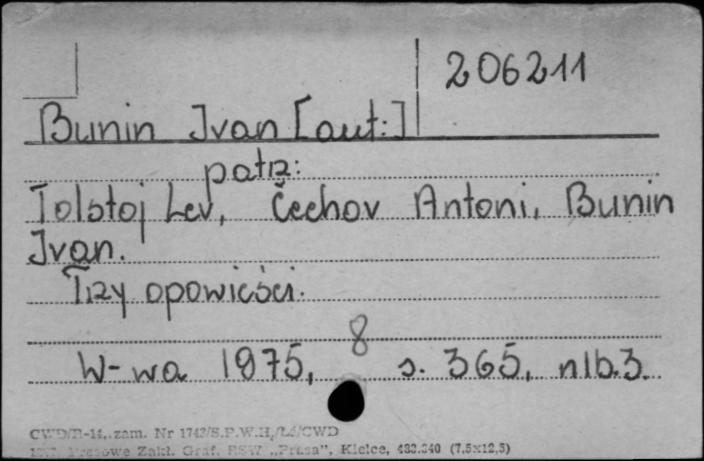 206211
Bunin Ivan [aut:]
patrz:
Tolstoj Lev, Čechov Antoni, Bunin
Ivan.
Trzy opowieści.
8
W-wa 1975, s. 365, nlb.3.
CWD/B-14, zam. Nr 1743/S.P.W.H./Ł/CWD
Prasowe Zakł. Graf. RSW „Prasa", Kielce, 483.340 (7,5x12,5)